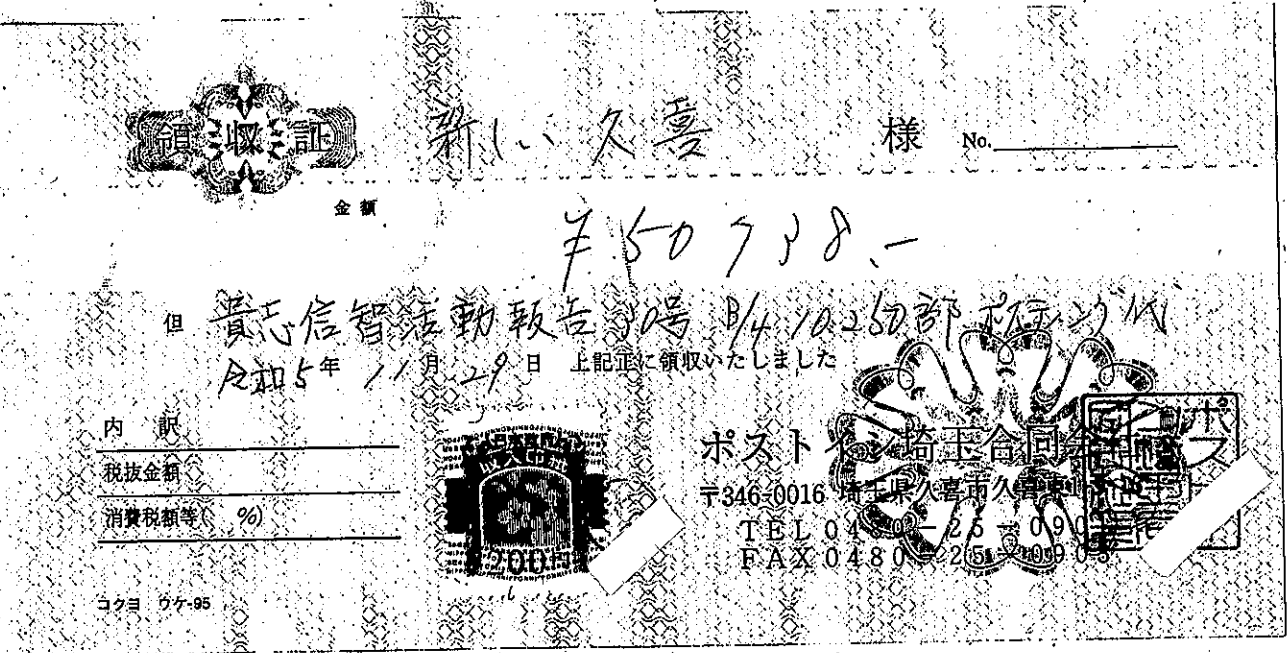 領収証 新しい久喜 様 No.
金額
¥50738.-
但 貴志信智活動報告30号 B/4 10.250部 ポスティング代
令和5年 11月 29日 上記正に領収いたしました
内 訳
税抜金額
消費税額等( %)
日本政府
収入印紙
200円
ポストイン埼玉合同会社
〒346-0016 埼玉県久喜市久喜東
TEL 0480-25-090
FAX 0480-25-090
コクヨ ウケ-95